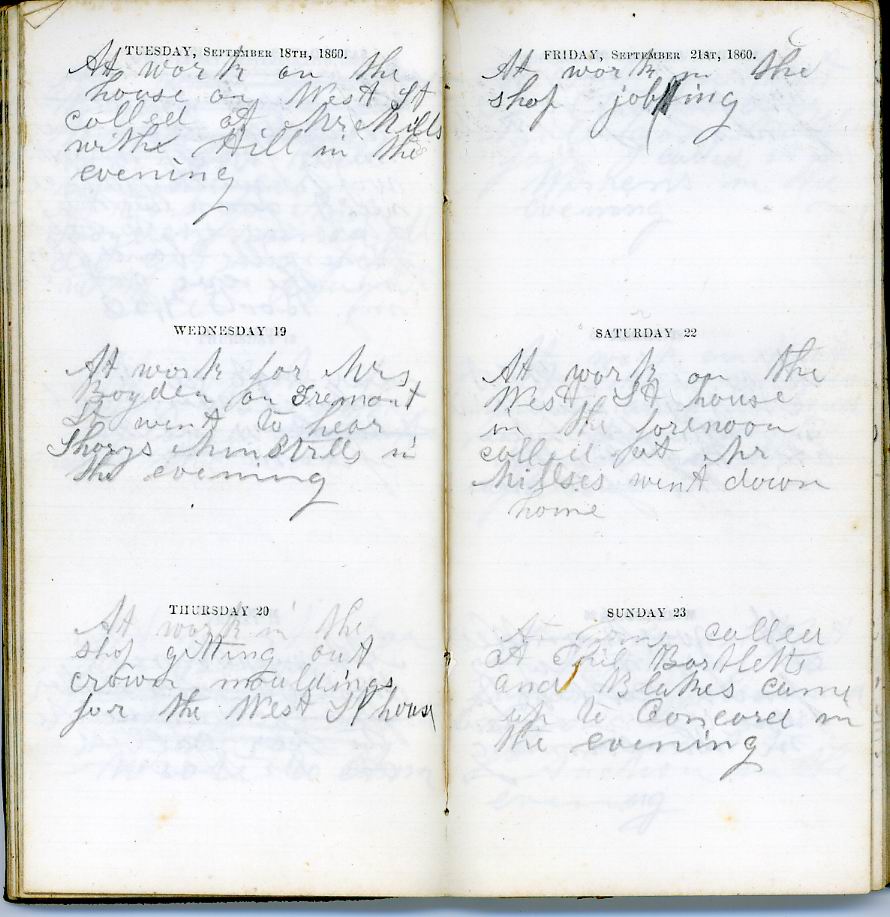 TUESDAY, SEPTEMBER 18TH, 1860.
At work on the
house on West St
called at Mr Mills
with Hill in the
evening
WEDNESDAY 19
At work for Mrs
Boyden on Tremont
St went to hear
Shorys Minstrells in
the evening
THURSDAY 20
At work in the
shop gitting out
crown mouldings
for the West St house
FRIDAY, SEPTEMBER 21ST, 1860.
At work in the
shop jobbing
SATURDAY 22
At work on the
West St house
in the forenoon
called at Mr
Millses went down
home
SUNDAY 23
At home called
at Phil Bartletts
and Blakes came
up to Concord in
the evening